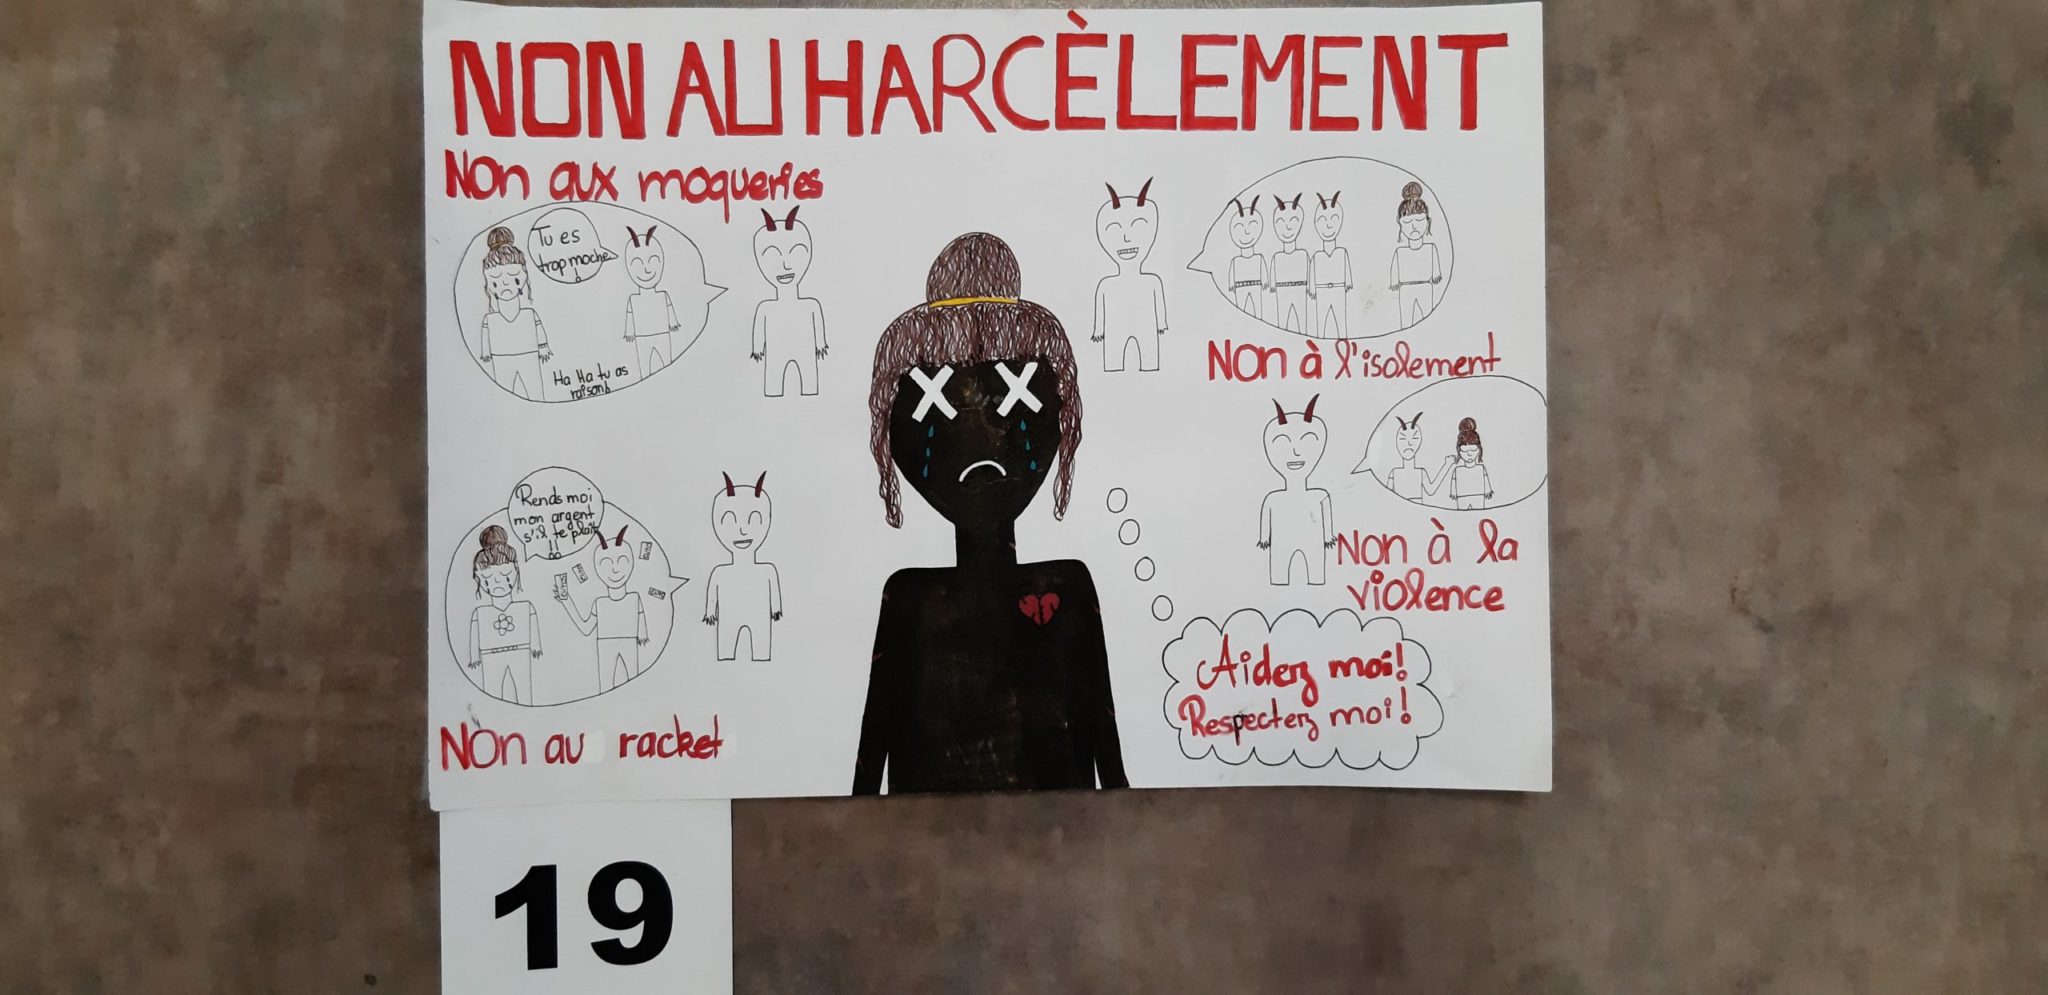 NON AU HARCÈLEMENT
Non aux moqueries
Tu es
trop moche
!
Ha Ha tu as
raison!
Non à l'isolement
Rends moi
mon argent
s'il te plaît
!!
Non à la
violence
Aidez moi!
Respectez moi!
Non au racket
19